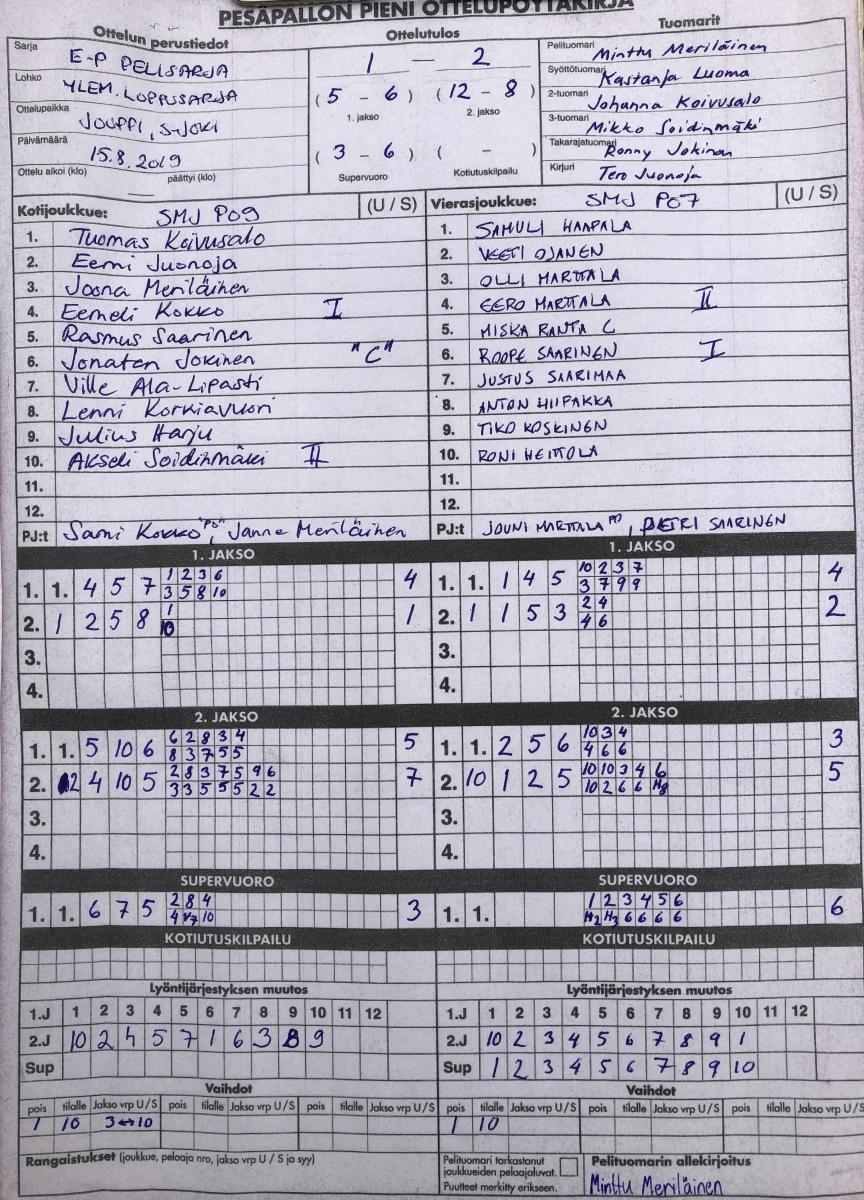 PESÄPALLON PIENI OTTELUPÖYTÄKIRJA
Ottelun perustiedot
Sarja E-P PELISARJA
Lohko YLEM. LOPPUSARJA
Ottelupaikka JOUPPI, S-JOKI
Päivämäärä 15.8.2019
Ottelu alkoi (klo) päättyi (klo)
Ottelutulos
1 — 2
(5 - 6) (12 - 8)
1. jakso 2. jakso
(3 - 6) ( - )
Supervuoro Kotiutuskilpailu
Tuomarit
Pelituomari Minttu Meriläinen
Syöttötuomari Kastanja Luoma
2-tuomari Johanna Koivusalo
3-tuomari Mikko Soidinmäki
Takarajatuomari Ronny Jokinen
Kirjuri Tero Juonoja
Kotijoukkue: SMJ P09 (U / S)
1. Tuomas Koivusalo
2. Eemi Juonoja
3. Joona Meriläinen
4. Eemeli Kokko I
5. Rasmus Saarinen
6. Jonatan Jokinen "C"
7. Ville Ala-Lipasti
8. Lenni Korkiavuori
9. Julius Harju
10. Akseli Soidinmäki II
11.
12.
PJ:t Sami Kokko "PJ", Janne Meriläinen
Vierasjoukkue: SMJ P07 (U / S)
1. SAMULI HAAPALA
2. VEETI OJANEN
3. OLLI MARTTALA
4. EERO MARTTALA II
5. MISKA RANTA C
6. ROOPE SAARINEN I
7. JUSTUS SAARIMAA
8. ANTON HIIPAKKA
9. TIKO KOSKINEN
10. RONI HEITTOLA
11.
12.
PJ:t JOUNI MARTTALA PJ, PETRI SAARINEN
1. JAKSO
1. 1. 4 5 7 1 2 3 6 4
3 5 8 10
2. 1 2 5 8 1 1
10
3.
4.
1. JAKSO
1. 1. 1 4 5 10 2 3 7 4
3 7 9 9
2. 1 1 5 3 2 4 2
4 6
3.
4.
2. JAKSO
1. 1. 5 10 6 6 2 8 3 4 5
8 3 7 5 5
2. 2 4 10 5 2 8 3 7 5 9 6 7
3 3 5 5 5 2 2
3.
4.
2. JAKSO
1. 1. 2 5 6 10 3 4 3
4 6 6
2. 10 1 2 5 10 10 3 4 6 5
10 2 6 6 H8
3.
4.
SUPERVUORO
1. 1. 6 7 5 2 8 4 3
4 V7 10
SUPERVUORO
1. 1. 1 2 3 4 5 6 6
H2 H3 6 6 6 6
KOTIUTUSKILPAILU
KOTIUTUSKILPAILU
Lyöntijärjestyksen muutos
1.J 1 2 3 4 5 6 7 8 9 10 11 12
2.J 10 2 4 5 7 1 6 3 8 9
Sup
Lyöntijärjestyksen muutos
1.J 1 2 3 4 5 6 7 8 9 10 11 12
2.J 10 2 3 4 5 6 7 8 9 1
Sup 1 2 3 4 5 6 7 8 9 10
Vaihdot
pois tilalle Jakso vrp U / S pois tilalle Jakso vrp U / S pois tilalle Jakso vrp U / S
1 10 3↔10
Vaihdot
pois tilalle Jakso vrp U / S pois tilalle Jakso vrp U / S pois tilalle Jakso vrp U / S
1 10
Rangaistukset (joukkue, pelaaja nro, jakso vrp U / S ja syy)
Pelituomari tarkastanut
joukkueiden pelaajaluvat.
Puutteet merkitty erikseen.
Pelituomarin allekirjoitus
Minttu Meriläinen